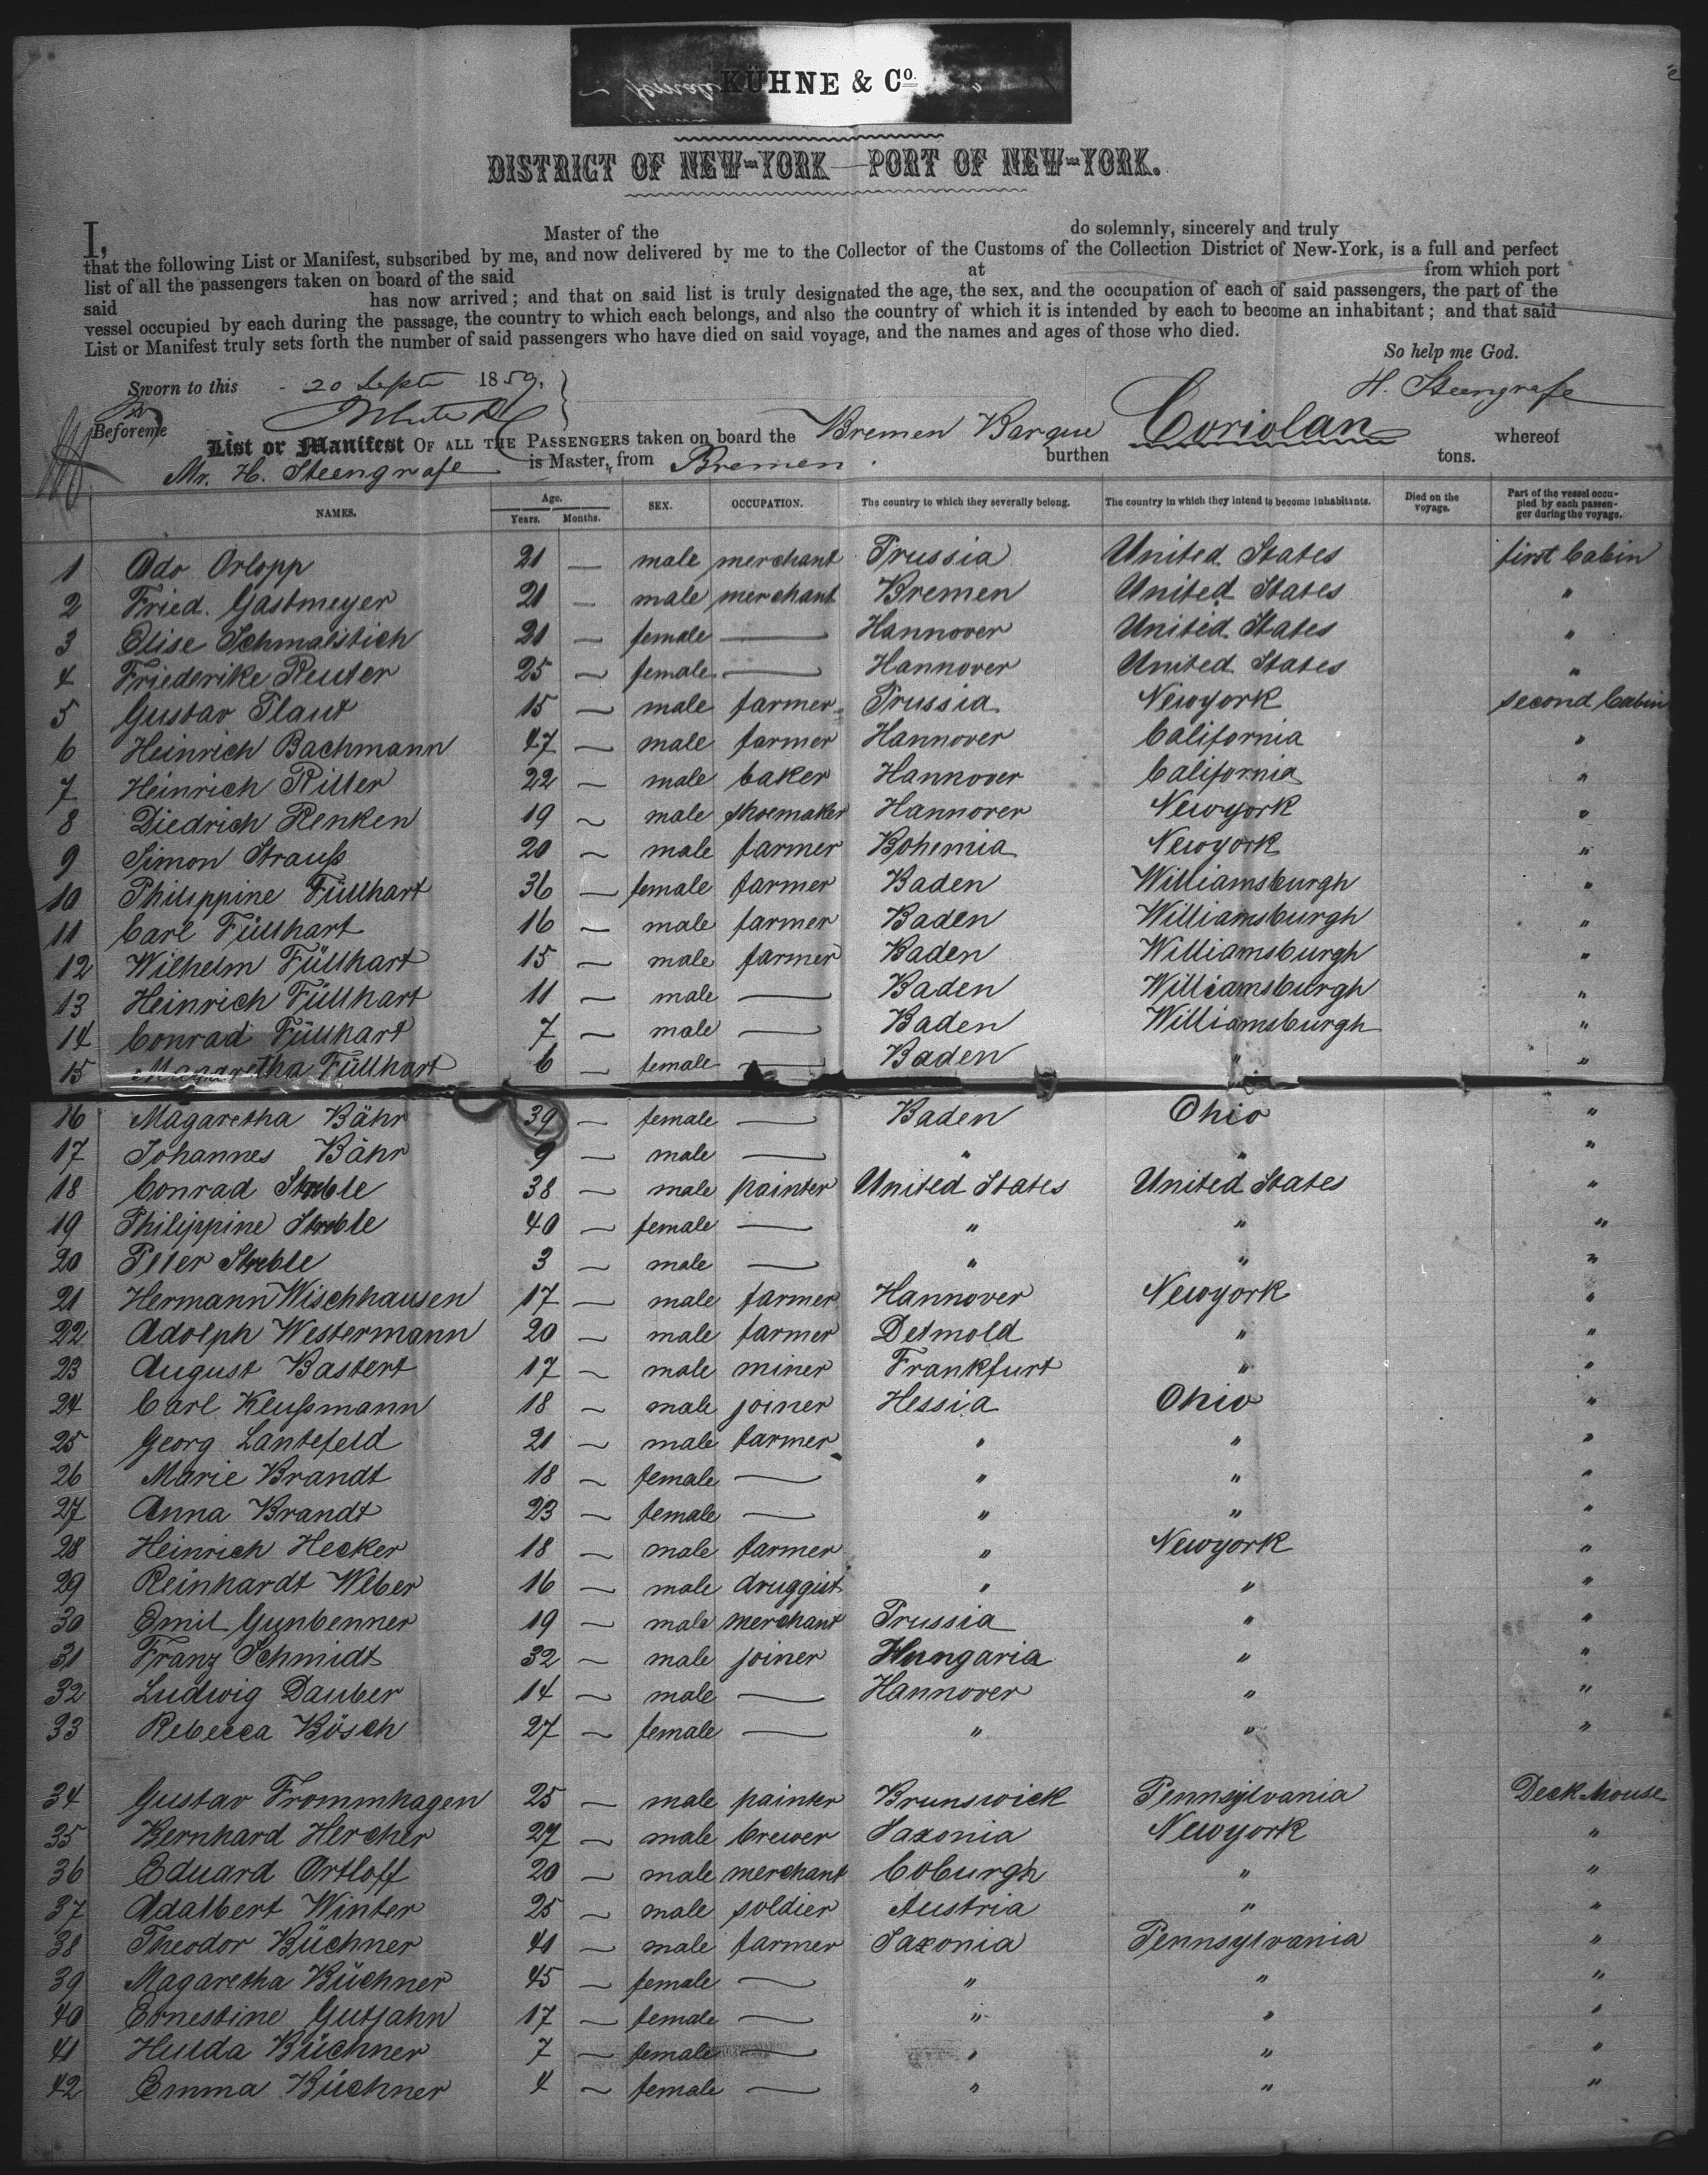 KÜHNE & Co.
DISTRICT OF NEW-YORK—PORT OF NEW-YORK.
I, Master of the do solemnly, sincerely and truly
that the following List or Manifest, subscribed by me, and now delivered by me to the Collector of the Customs of the Collection District of New-York, is a full and perfect
list of all the passengers taken on board of the said at from which port
said has now arrived; and that on said list is truly designated the age, the sex, and the occupation of each of said passengers, the part of the
vessel occupied by each during the passage, the country to which each belongs, and also the country of which it is intended by each to become an inhabitant; and that said
List or Manifest truly sets forth the number of said passengers who have died on said voyage, and the names and ages of those who died.
So help me God.
Sworn to this 20 Septr 1859.
H. Steengrafe
Before me
List or Manifest OF ALL THE PASSENGERS taken on board the Bremen Barque Coriolan whereof
Mr. H. Steengrafe is Master, from Bremen. burthen tons.
NAMES. Age. Years. Months. SEX. OCCUPATION. The country to which they severally belong. The country in which they intend to become inhabitants. Died on the voyage. Part of the vessel occupied by each passenger during the voyage.
1 Ado Orlopp 21 — male merchant Prussia United States first Cabin
2 Fried. Gastmeyer 21 — male merchant Bremen United States "
3 Elise Schmalstich 21 — female — Hannover United States "
4 Friederike Reuter 25 — female — Hannover United States "
5 Gustav Plaut 15 — male farmer Prussia Newyork second Cabin
6 Heinrich Bachmann 47 — male farmer Hannover California "
7 Heinrich Ritter 22 — male baker Hannover California "
8 Diedrich Renken 19 — male shoemaker Hannover Newyork "
9 Simon Strauß 20 — male farmer Bohemia Newyork "
10 Philippine Füllhart 36 — female farmer Baden Williamsburgh "
11 Carl Füllhart 16 — male farmer Baden Williamsburgh "
12 Wilhelm Füllhart 15 — male farmer Baden Williamsburgh "
13 Heinrich Füllhart 11 — male — Baden Williamsburgh "
14 Conrad Füllhart 7 — male — Baden Williamsburgh "
15 Magaretha Füllhart 6 — female — Baden " "
16 Magaretha Bähr 39 — female — Baden Ohio "
17 Johannes Bähr 9 — male — " " "
18 Conrad Streble 38 — male painter United States United States "
19 Philippine Streble 40 — female — " " "
20 Peter Streble 3 — male — " " "
21 Hermann Wischhausen 17 — male farmer Hannover Newyork "
22 Adolph Westermann 20 — male farmer Detmold " "
23 August Bastert 17 — male miner Frankfurt " "
24 Carl Kleußmann 18 — male joiner Hessia Ohio "
25 Georg Lantefeld 21 — male farmer " " "
26 Marie Brandt 18 — female — " " "
27 Anna Brandt 23 — female — " " "
28 Heinrich Hecker 18 — male farmer " Newyork "
29 Reinhardt Weber 16 — male druggist " " "
30 Emil Gunbenner 19 — male merchant Prussia " "
31 Franz Schmidt 32 — male joiner Hungaria " "
32 Ludwig Dauber 14 — male — Hannover " "
33 Rebecca Bösch 27 — female — " " "
34 Gustav Frommhagen 25 — male painter Brunswick Pennsylvania Deck house
35 Bernhard Hercher 27 — male brewer Saxonia Newyork "
36 Eduard Ortloff 20 — male merchant Coburgh " "
37 Adalbert Winter 25 — male soldier Austria " "
38 Theodor Büchner 41 — male farmer Saxonia Pennsylvania "
39 Magaretha Büchner 45 — female — " " "
40 Ernestine Gutjahn 17 — female — " " "
41 Hulda Büchner 7 — female — " " "
42 Emma Büchner 4 — female — " " "